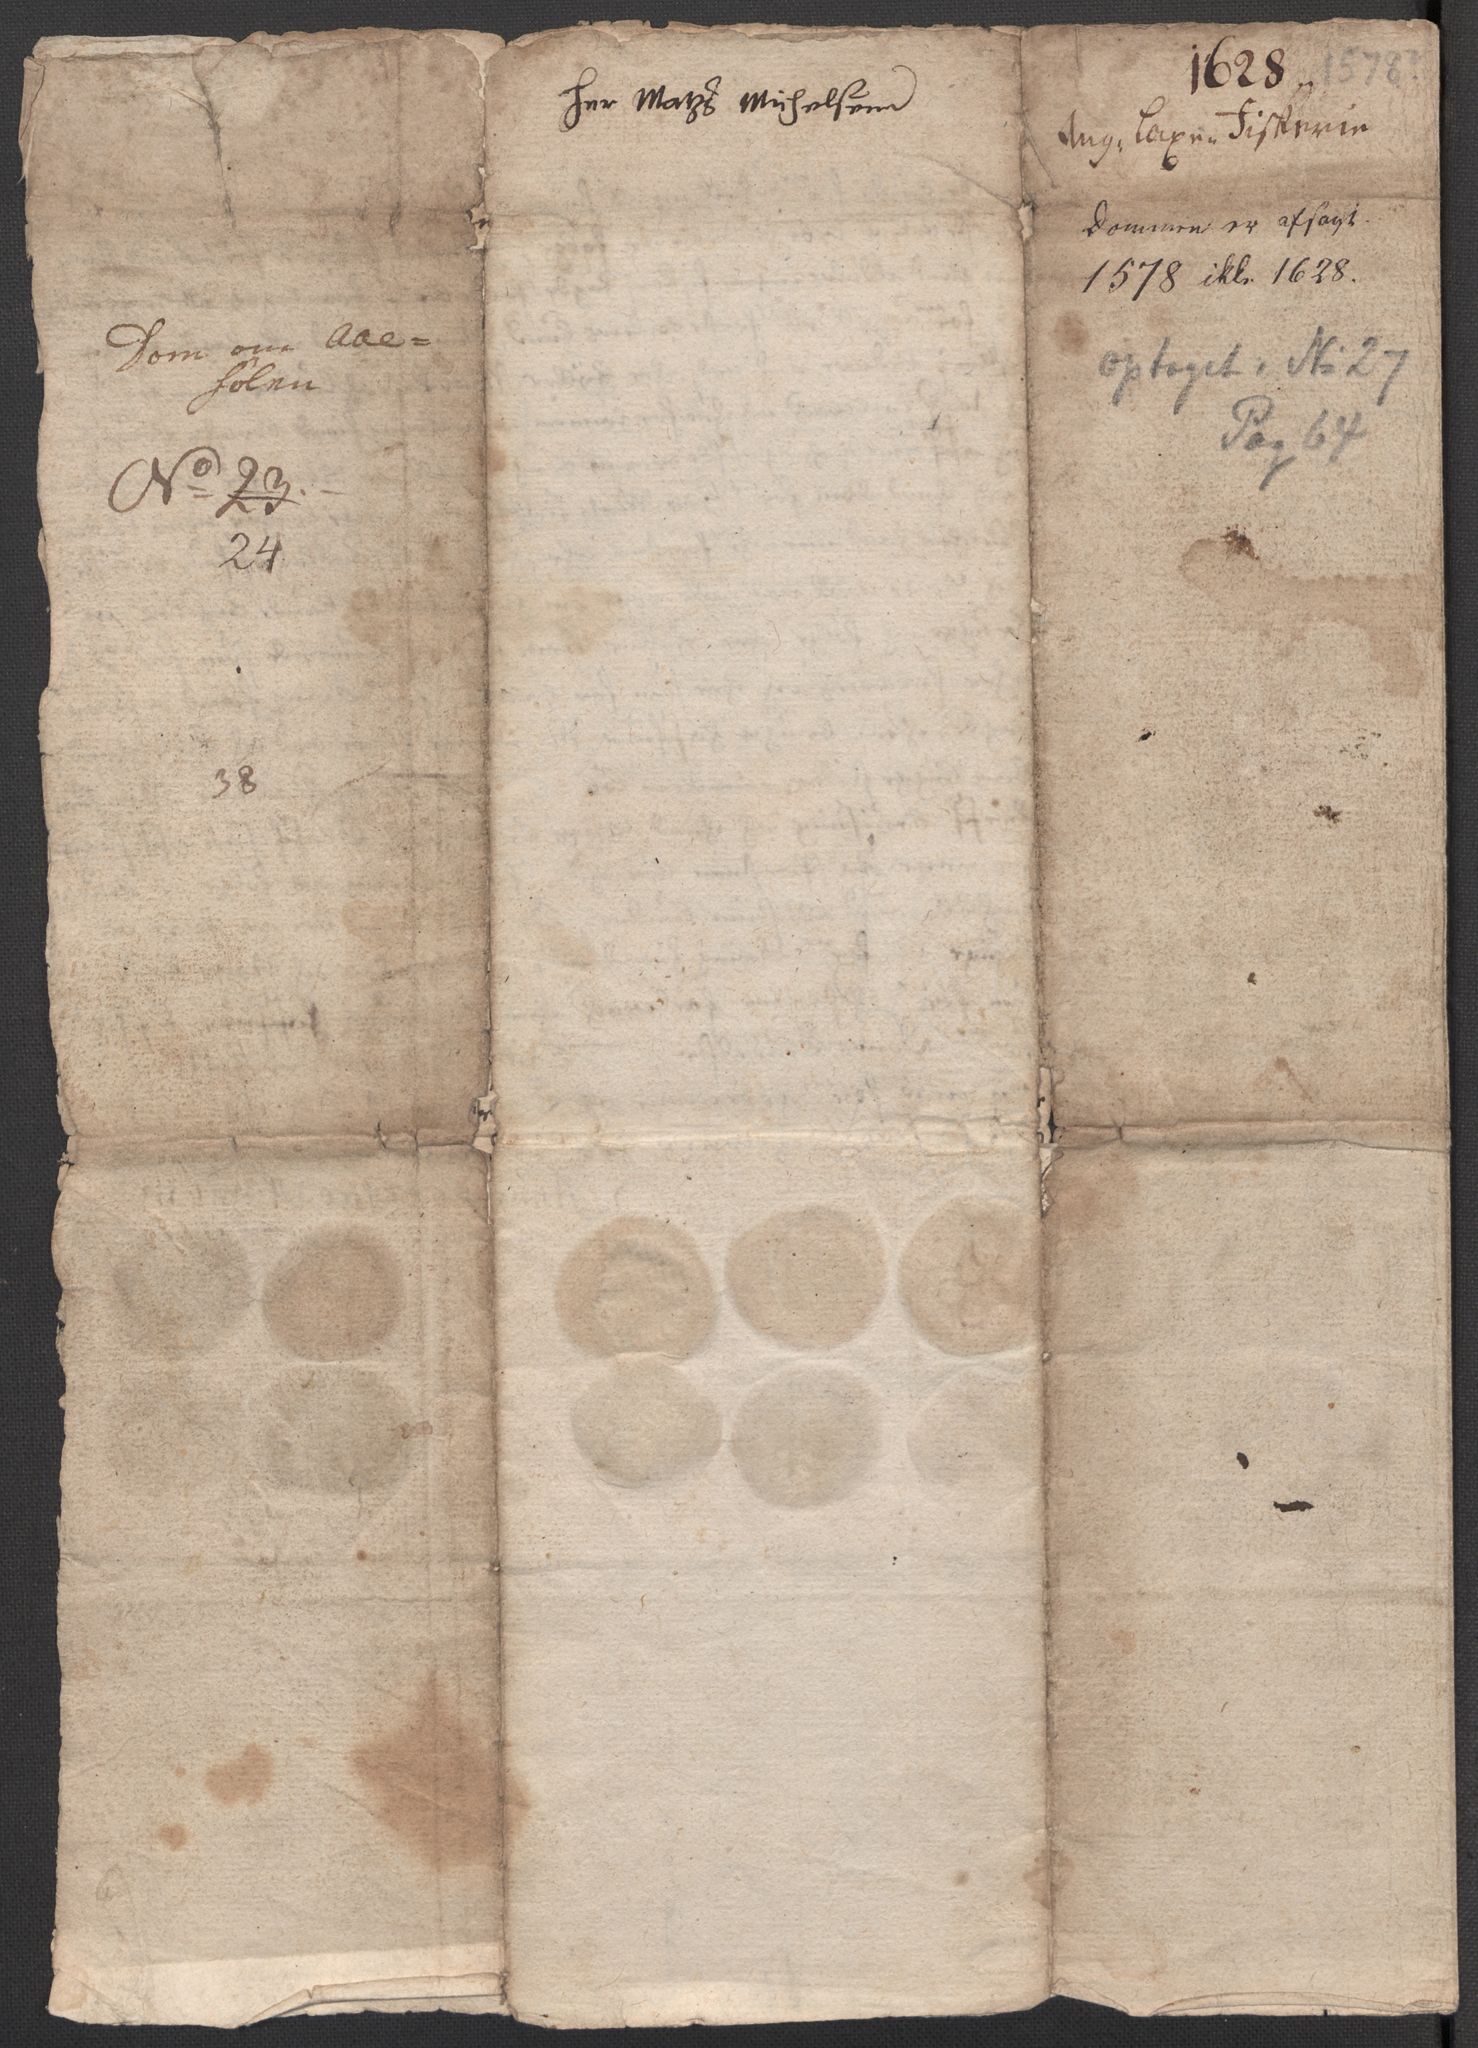 Dom om Aae=
hölen
No 23.
24
38
her Matzs Michelsenn
1628 1578?
Ang. Laxe Fiskerie
Dommen er afsagt
1578 ikke 1628.
optaget i No 27
Pag 64